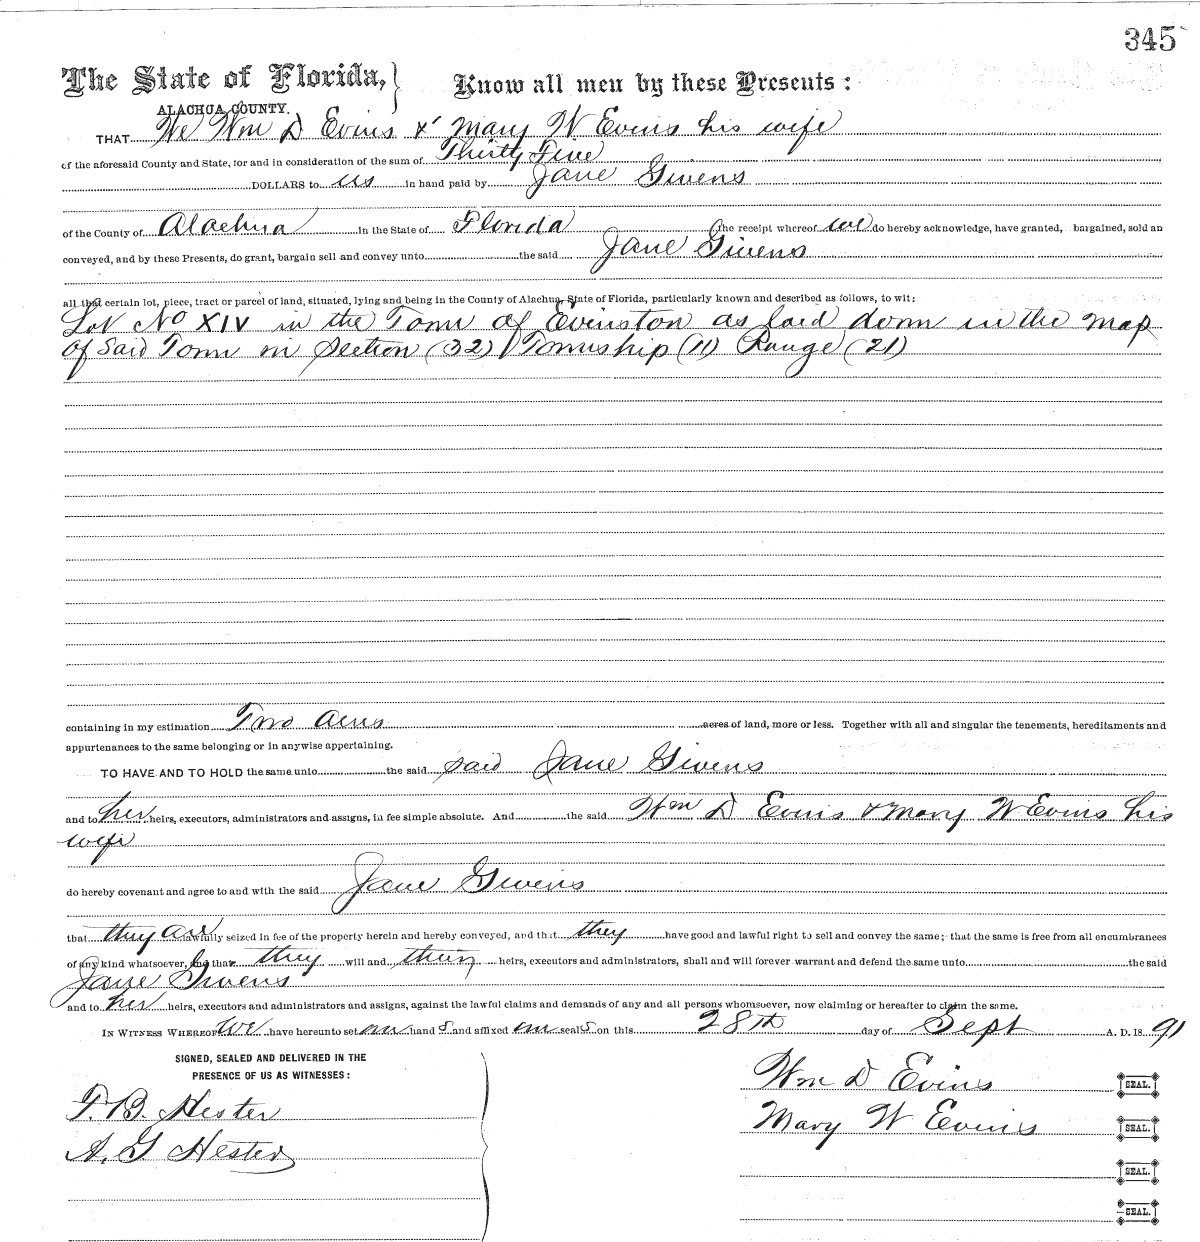 345
The State of Florida,} Know all men by these Presents:
ALACHUA COUNTY.
THAT We Wm D Evins & Mary W Evins his wife
of the aforesaid County and State, for and in consideration of the sum of Thirty Five
DOLLARS to us in hand paid by Jane Givens
of the County of Alachua in the State of Florida the receipt whereof we do hereby acknowledge, have granted, bargained, sold an
conveyed, and by these Presents, do grant, bargain sell and convey unto the said Jane Givens
all that certain lot, piece, tract or parcel of land, situated, lying and being in the County of Alachua, State of Florida, particularly known and described as follows, to wit:
Lot No XIV in the Town of Evinston as laid down in the map
of Said Town in Section (32) Township (11) Range (21)
containing in my estimation Two acres acres of land, more or less. Together with all and singular the tenements, hereditaments and
appurtenances to the same belonging or in anywise appertaining.
TO HAVE AND TO HOLD the same unto the said said Jane Givens
and to her heirs, executors, administrators and assigns, in fee simple absolute. And the said Wm D Evins & Mary W Evins his
wife
do hereby covenant and agree to and with the said Jane Givens
that they are lawfully seized in fee of the property herein and hereby conveyed, and that they have good and lawful right to sell and convey the same; that the same is free from all encumbrances
of any kind whatsoever, and that they will and their heirs, executors and administrators, shall and will forever warrant and defend the same unto the said
Jane Givens
and to her heirs, executors and administrators and assigns, against the lawful claims and demands of any and all persons whomsoever, now claiming or hereafter to claim the same.
IN WITNESS WHEREOF We have hereunto set our hand s and affixed our seal s on this 28th day of Sept A. D. 18 91
SIGNED, SEALED AND DELIVERED IN THE
PRESENCE OF US AS WITNESSES:
Wm D Evins SEAL.
T. B. Hester
Mary W Evins SEAL.
A. G Hester
SEAL.
SEAL.